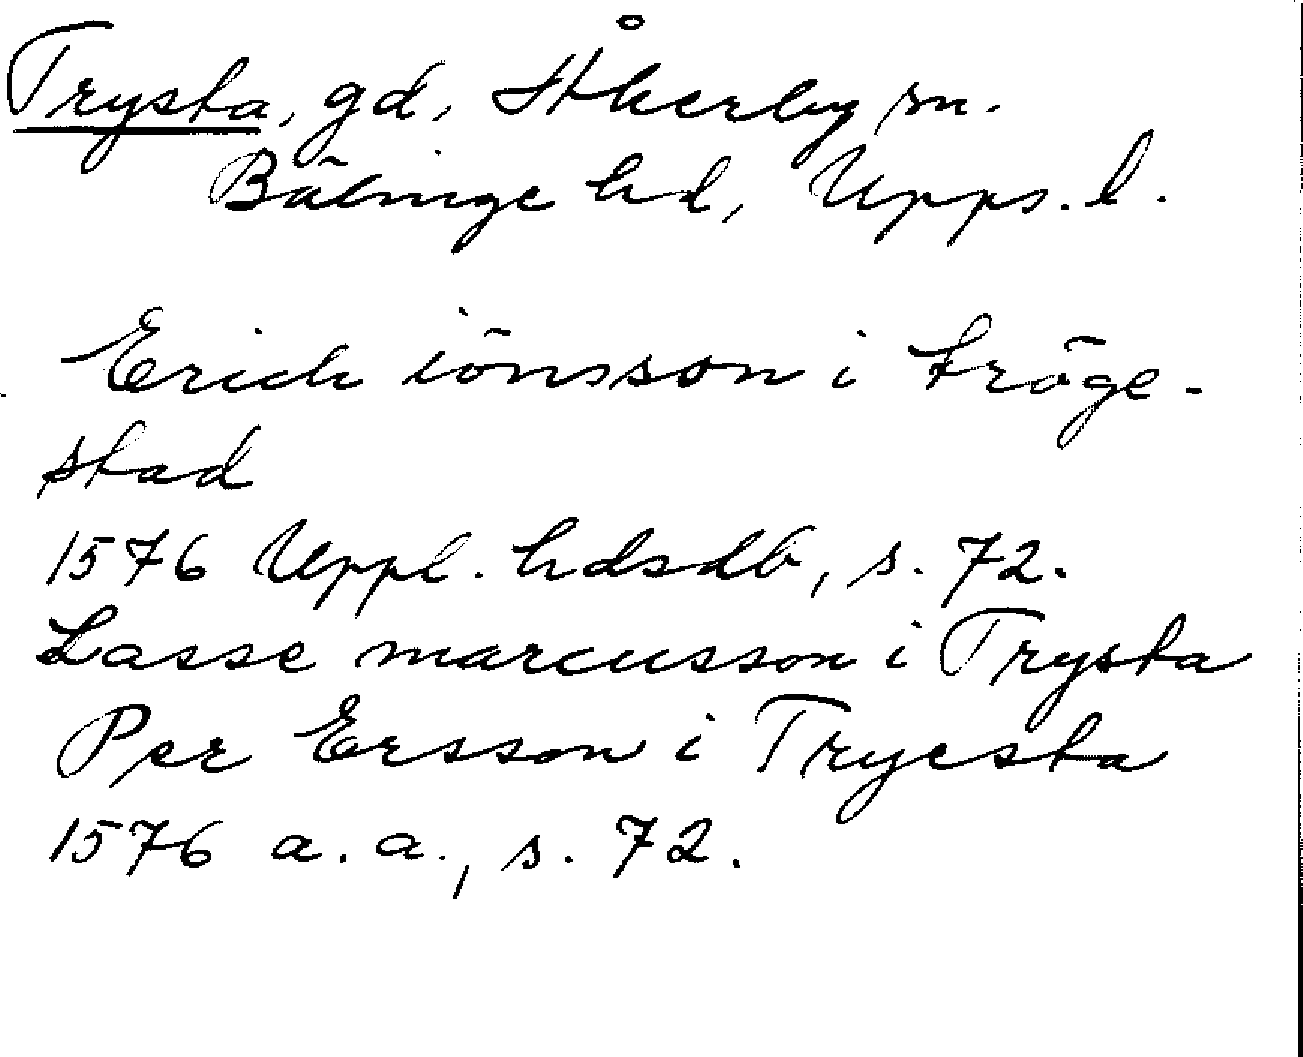 Trysta, gd, Åkerby sn.
Bälinge hd, Upps. l.
Erich iönsson i tröge-
stad
1576 Uppl. hdsdb, s. 72.
Lasse marcusson i Trysta
Per Ersson i Tryesta
1576 a. a., s. 72.